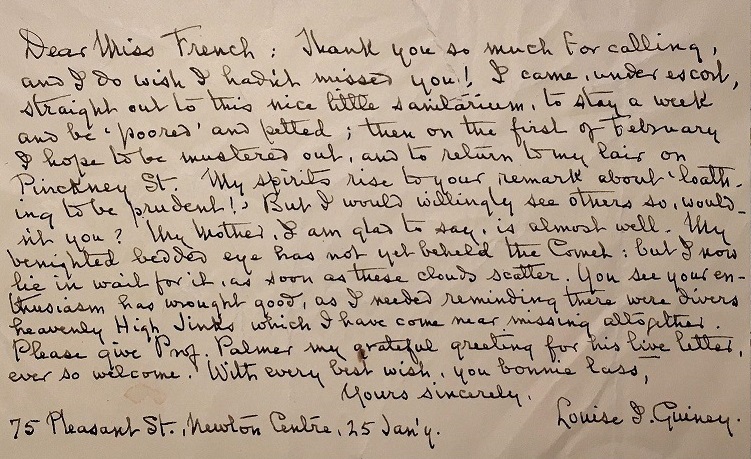 Dear Miss French: Thank you so much for calling,
and I do wish I hadn't missed you! I came, under escort,
straight out to this nice little sanitarium, to stay a week
and be 'poored' and petted; then on the first of February
I hope to be mustered out, and to return to my lair on
Pinckney St. My spirits rise to your remark about 'loath-
ing to be prudent!' But I would willingly see others so, would-
n't you? My Mother, I am glad to say, is almost well. My
benighted bedded eye has not yet beheld the Comet: but I now
lie in wait for it, as soon as these clouds scatter. You see your en-
thusiasm has wrought good, as I needed reminding there were divers
heavenly High Jinks which I have come near missing altogether.
Please give Prof. Palmer my grateful greeting for his live letter,
ever so welcome. With every best wish, you bonnie lass,
Yours sincerely,
Louise I. Guiney.
75 Pleasant St., Newton Centre, 25 Jan'y.